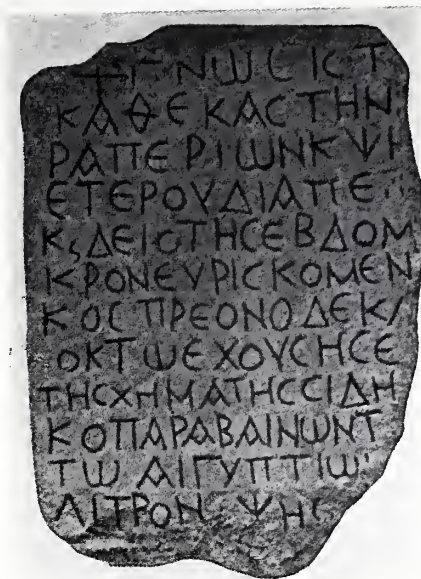 ☩ΓΝΩϹΙϹΤ
ΚΑΘΕΚΑϹΤΗΝ
ΡΑΠΕΡΙΩΝΚΨΗ
ΕΤΕΡΟΥΔΙΑΠΕ
ΚϛΔΕΙϹΤΗϹΕΒΔΟΜ
ΚΡΟΝΕΥΡΙϹΚΟΜΕΝ
ΚΟϹΠΡΕΟΝΟΔΕΚ
ΟΚΤΩΕΧΟΥϹΗϹΕ
ΤΗϹΧΗΜΑΤΗϹϹΙΔΗ
ΚΟΠΑΡΑΒΑΙΝΩΝΤ
ΤΩΑΙΓΥΠΤΙΩ
ΛΙΤΡΟΝ ΨΗϹ